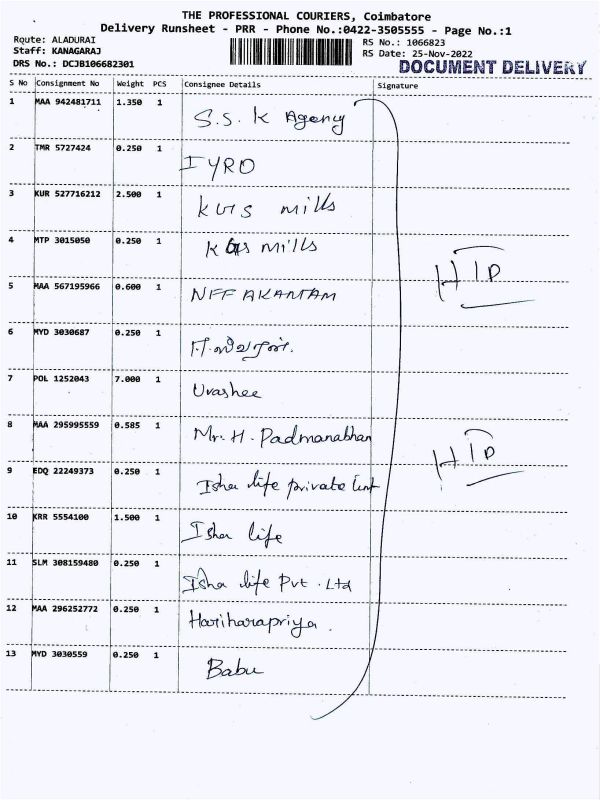 THE PROFESSIONAL COURIERS, Coimbatore
Delivery Runsheet - PRR - Phone No.:0422-3505555 - Page No.:1
Route: ALADURAI
RS No.: 1066823
Staff: KANAGARAJ
RS Date: 25-Nov-2022
DRS No.: DCJB106682301
DOCUMENT DELIVERY
S No Consignment No Weight PCS Consignee Details Signature
1 MAA 942481711 1.350 1 S.S. K Agency
2 TMR 5727424 0.250 1 IYRO
3 KUR 527716212 2.500 1 KGS mills
4 MTP 3015050 0.250 1 KGS mills
HTD
5 MAA 567195966 0.600 1
6 MYD 3030687 0.250 1
7 POL 1252043 7.000 1 Urashee
8 MAA 295995559 0.585 1 Mr. H. Padmanabhan
HTD
9 EDQ 22249373 0.250 1 Isha life private
10 KRR 5554100 1.500 1 Isha life
11 SLM 308159480 0.250 1 Isha life Pvt. Ltd
12 MAA 296252772 0.250 1 Hariharapriya.
13 MYD 3030559 0.250 1 Babu